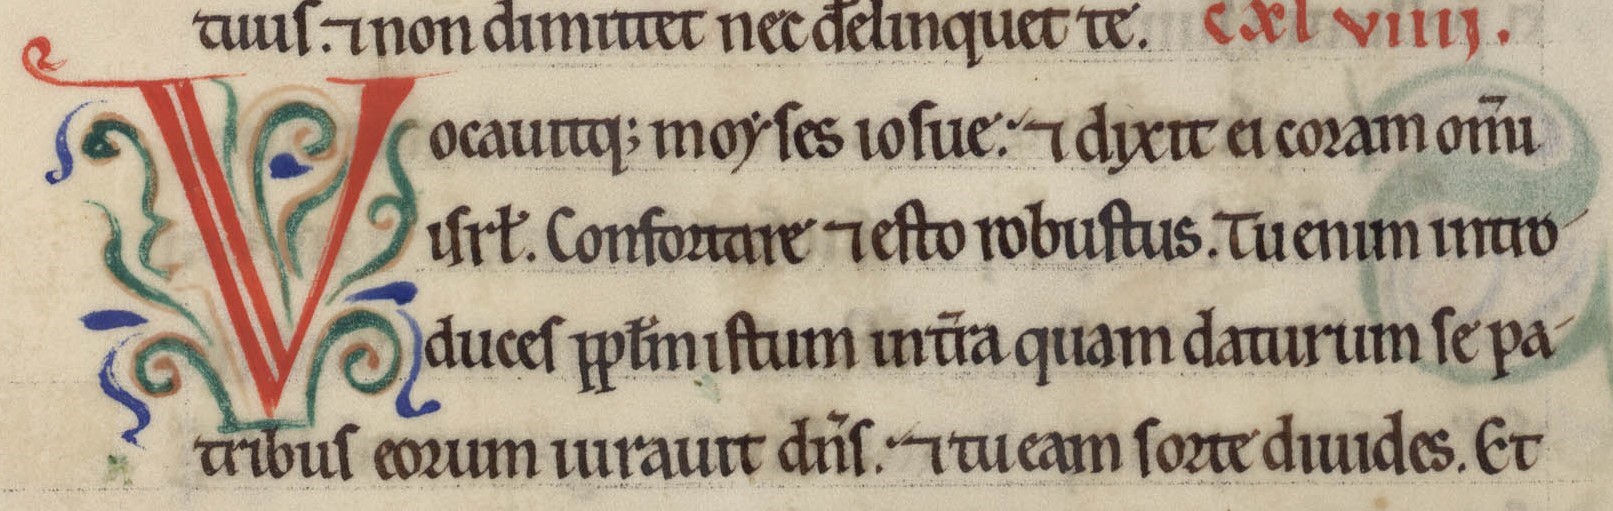 tuus. ⁊ non dimittet nec đelinquet te. cxlviiij.
Vocauitq; moyses iosue. ⁊ dixit ei coram om̄i
isrł. Confortare ⁊ esto robustus. Tu enim intro
duces ppłm istum in tr̄a quam daturum se pa-
tribus eorum iurauit dn̄s. ⁊ tu eam sorte diuides. Et